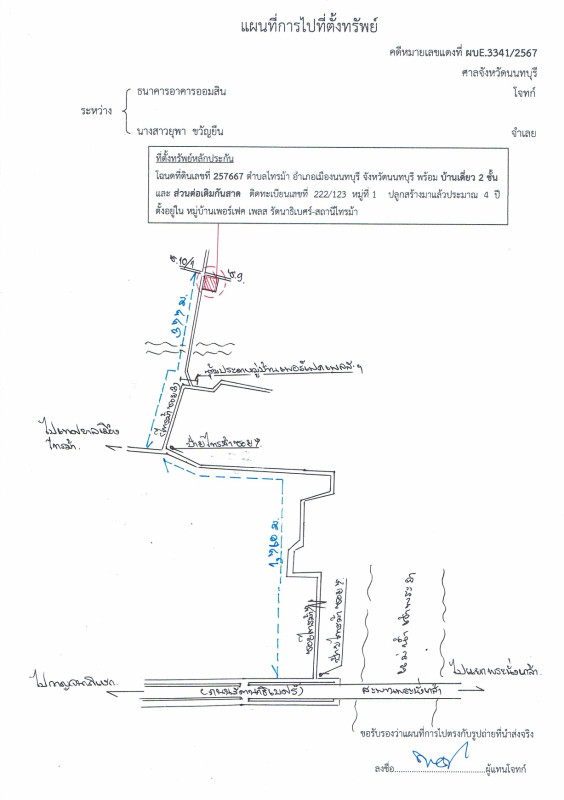 แผนที่การไปที่ตั้งทรัพย์
คดีหมายเลขแดงที่ ผบE.3341/2567
ศาลจังหวัดนนทบุรี
ธนาคารอาคารออมสิน โจทก์
ระหว่าง
นางสาวยุพา ขวัญยืน จำเลย
ที่ตั้งทรัพย์หลักประกัน
โฉนดที่ดินเลขที่ 257667 ตำบลไทรม้า อำเภอเมืองนนทบุรี จังหวัดนนทบุรี พร้อม บ้านเดี่ยว 2 ชั้น
และ ส่วนต่อเติมกันสาด ติดทะเบียนเลขที่ 222/123 หมู่ที่ 1 ปลูกสร้างมาแล้วประมาณ 4 ปี
ตั้งอยู่ใน หมู่บ้านเพอร์เฟค เพลส รัตนาธิเบศร์-สถานีไทรม้า
ซ.10/1
ซ.9
ซุ้มประตูหมู่บ้านเพอร์เฟคเพลสฯ
ไทรม้า.
ป้ายไทรม้าซอย 9
แม่น้ำเจ้าพระยา
ไปแยกพระนั่งเกล้า
ไปกาญจนาภิเษก.
(ถนนรัตนาธิเบศร์)
สะพานพระนั่งเกล้า
ขอรับรองว่าแผนที่การไปตรงกับรูปถ่ายที่นำส่งจริง
ลงชื่อ..............................ผู้แทนโจทก์